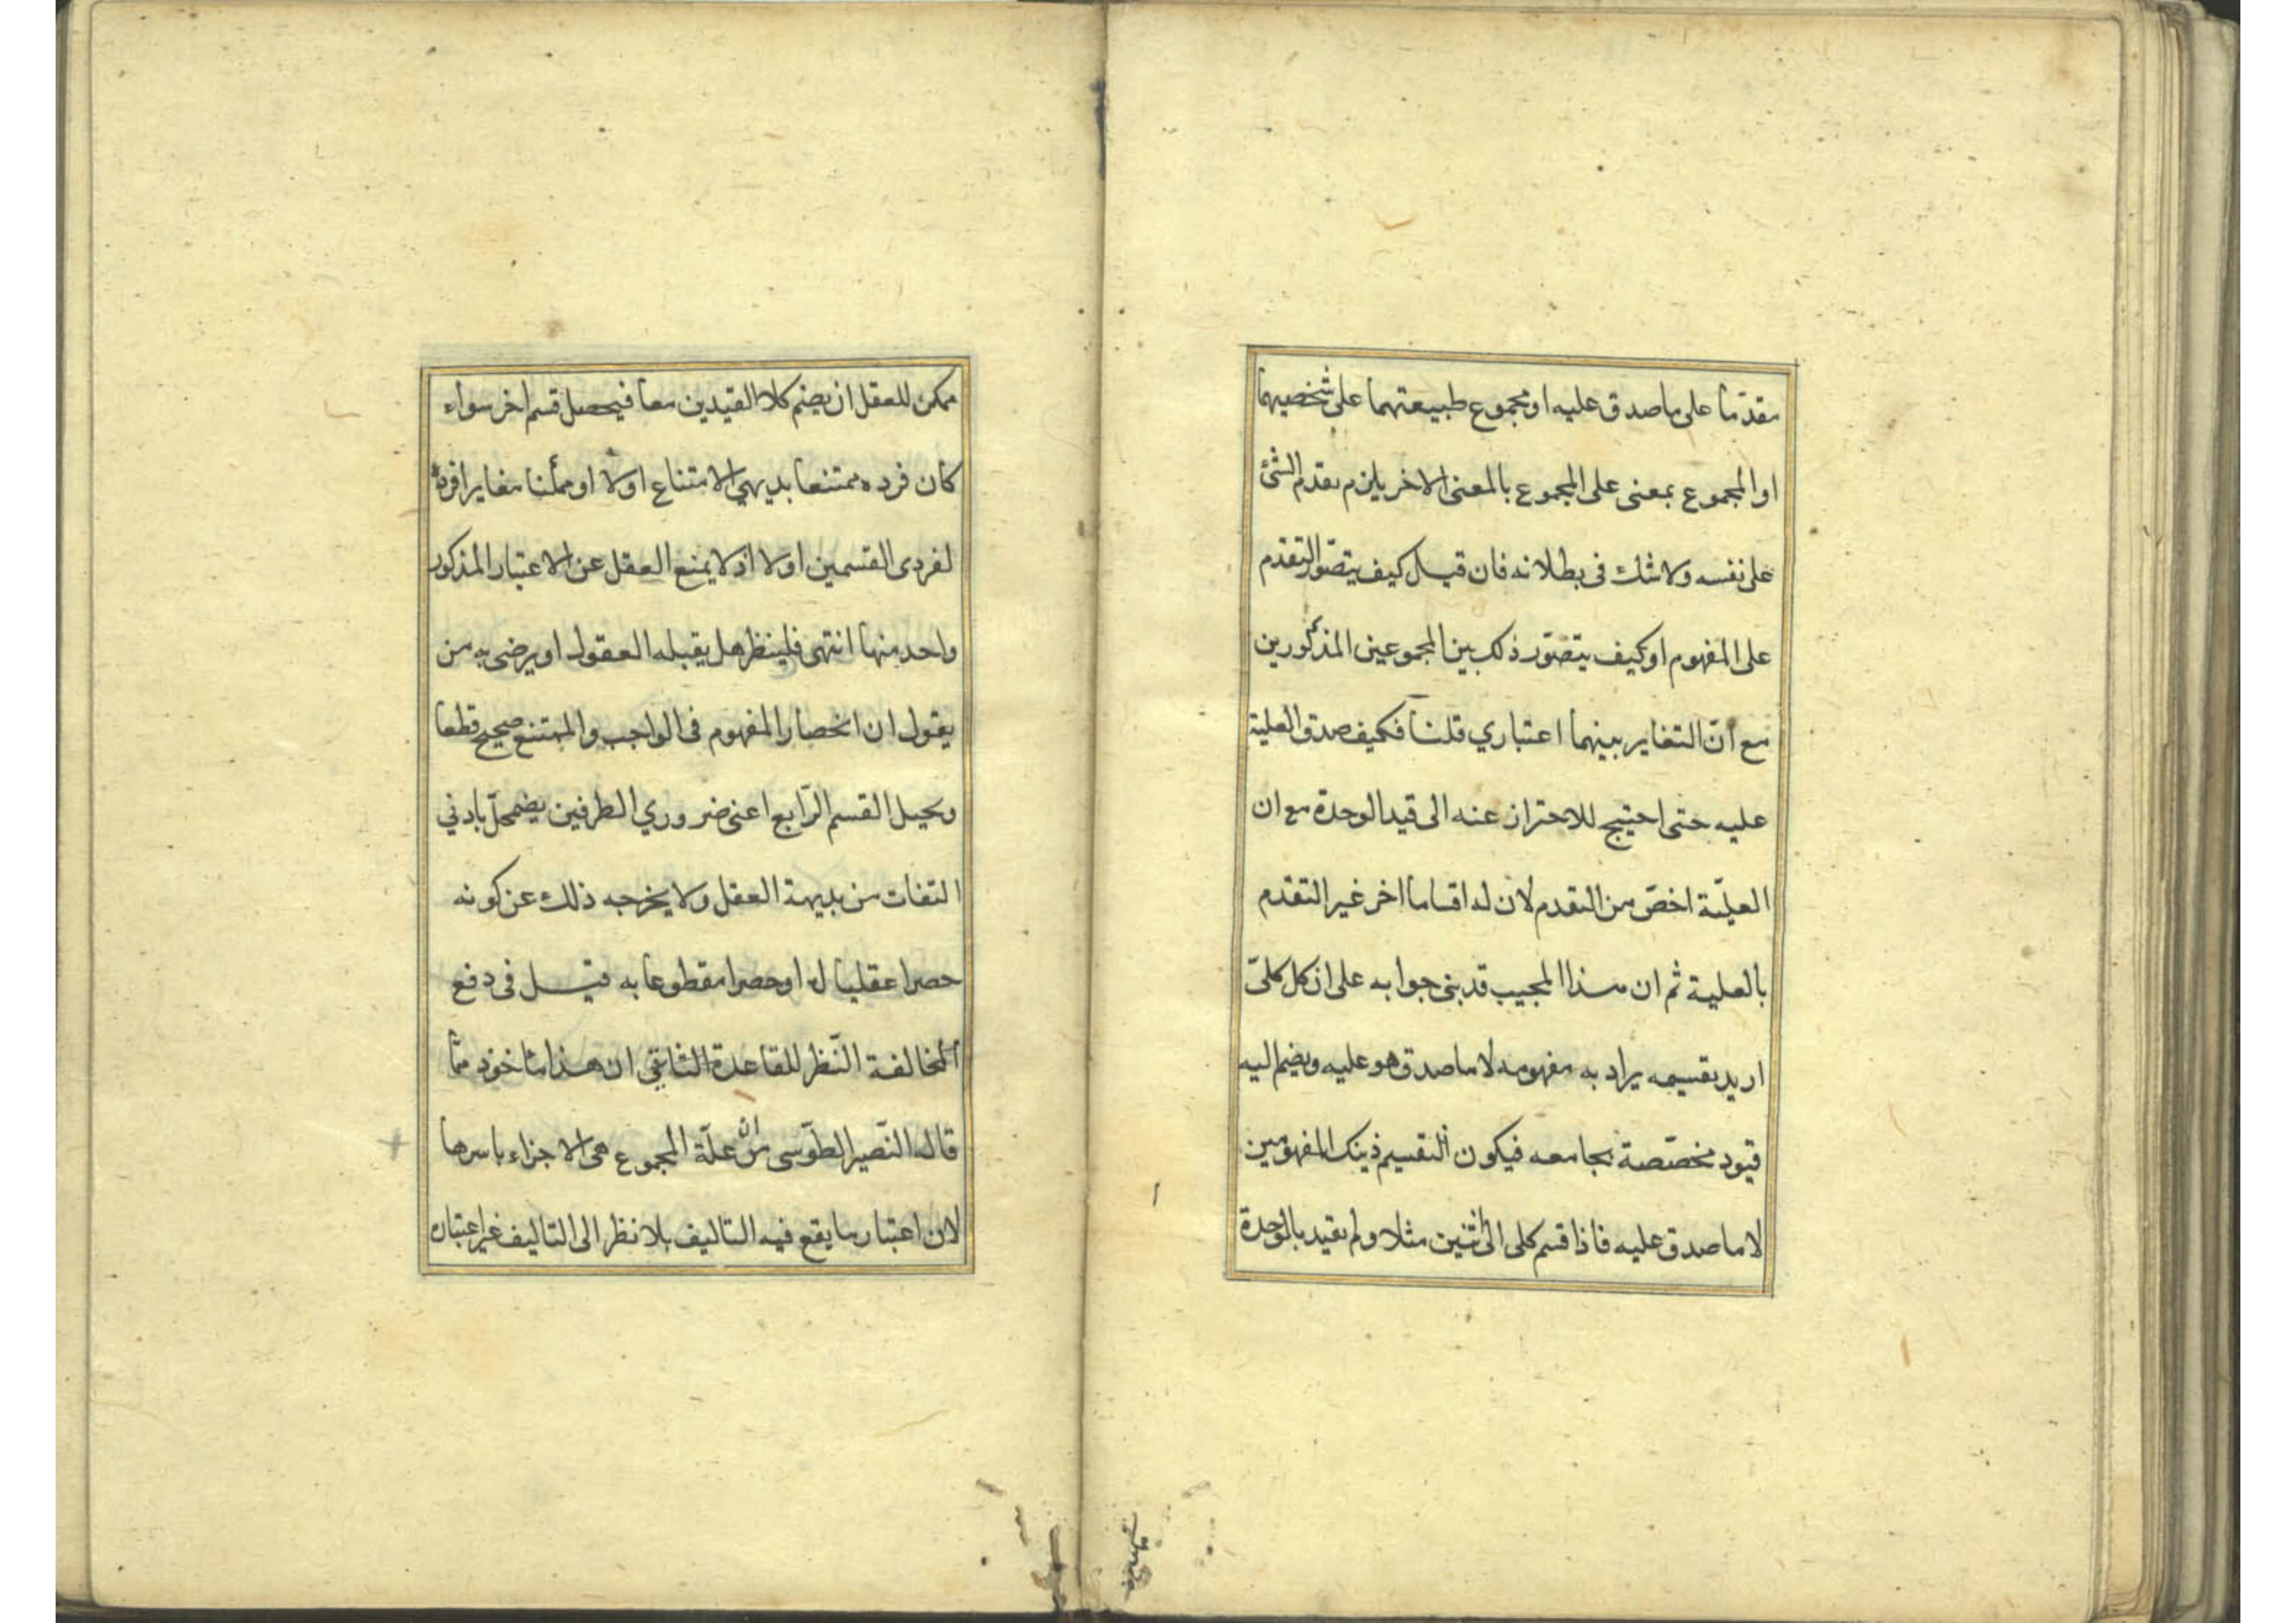 مقدّما على ما صدق عليه او مجموع طبيعتهما على شخصيهما
او المجموع بمعنى على المجموع بالمعنى الاخر يلزم تقدم الشئ
على نفسه ولا شك فى بطلانه فان قيل كيف يتصوّر التقدم
على المفهوم او كيف يتصوّر ذلك بين المجموعين المذكورين
مع انّ التغاير بينهما اعتباري قلنا فكيف صدق العلية
عليه حتى احتيج للاحتراز عنه الى قيد الوحدة مع ان
العليّة اخصّ من التقدم لان له اقساما اخر غير التقدم
بالعلية ثم ان هذا المجيب قد بنى جوابه على ان كل كلىّ
اريد تقسيمه يراد به مفهومه لا ما صدق هو عليه ويضم اليه
قيود مخصّصة بجامعه فيكون التقسيم ذينك المفهومين
لا ما صدق عليه فاذا قسم كلى الى اثنين مثلا ولم يقيد بالوحدة
ممكن للعقل ان يضم كلا القيدين معا فيحصل قسم اخر سواء
كان فرده ممتنعا بديهي الامتناع اولا او ممكنا مغايرا فرده
لفردى القسمين اولا اذ لا يمنع العقل عن الاعتبار المذكور
واحد منها انتهى فلينظر هل يقبله العقول او يرضى به من
يقول ان انحصار المفهوم فى الواجب والممتنع صحيح قطعا
ويحيل القسم الرّابع اعنى ضروري الطرفين يضمحلّ بادني
التفات من بديهة العقل ولا يخرجه ذلك عن كونه
حصرا عقليا له او حصرا مقطوعا به قيل فى دفع
المخالفة النّظر للقاعدة الثانى ان هذا ماخوذ ممّا
قاله النّصير الطّوسى من انّ علّة المجموع هى الاجزاء باسرها
لان اعتبار ما يقع فيه التاليف بلا نظر الى التاليف غير اعتباره